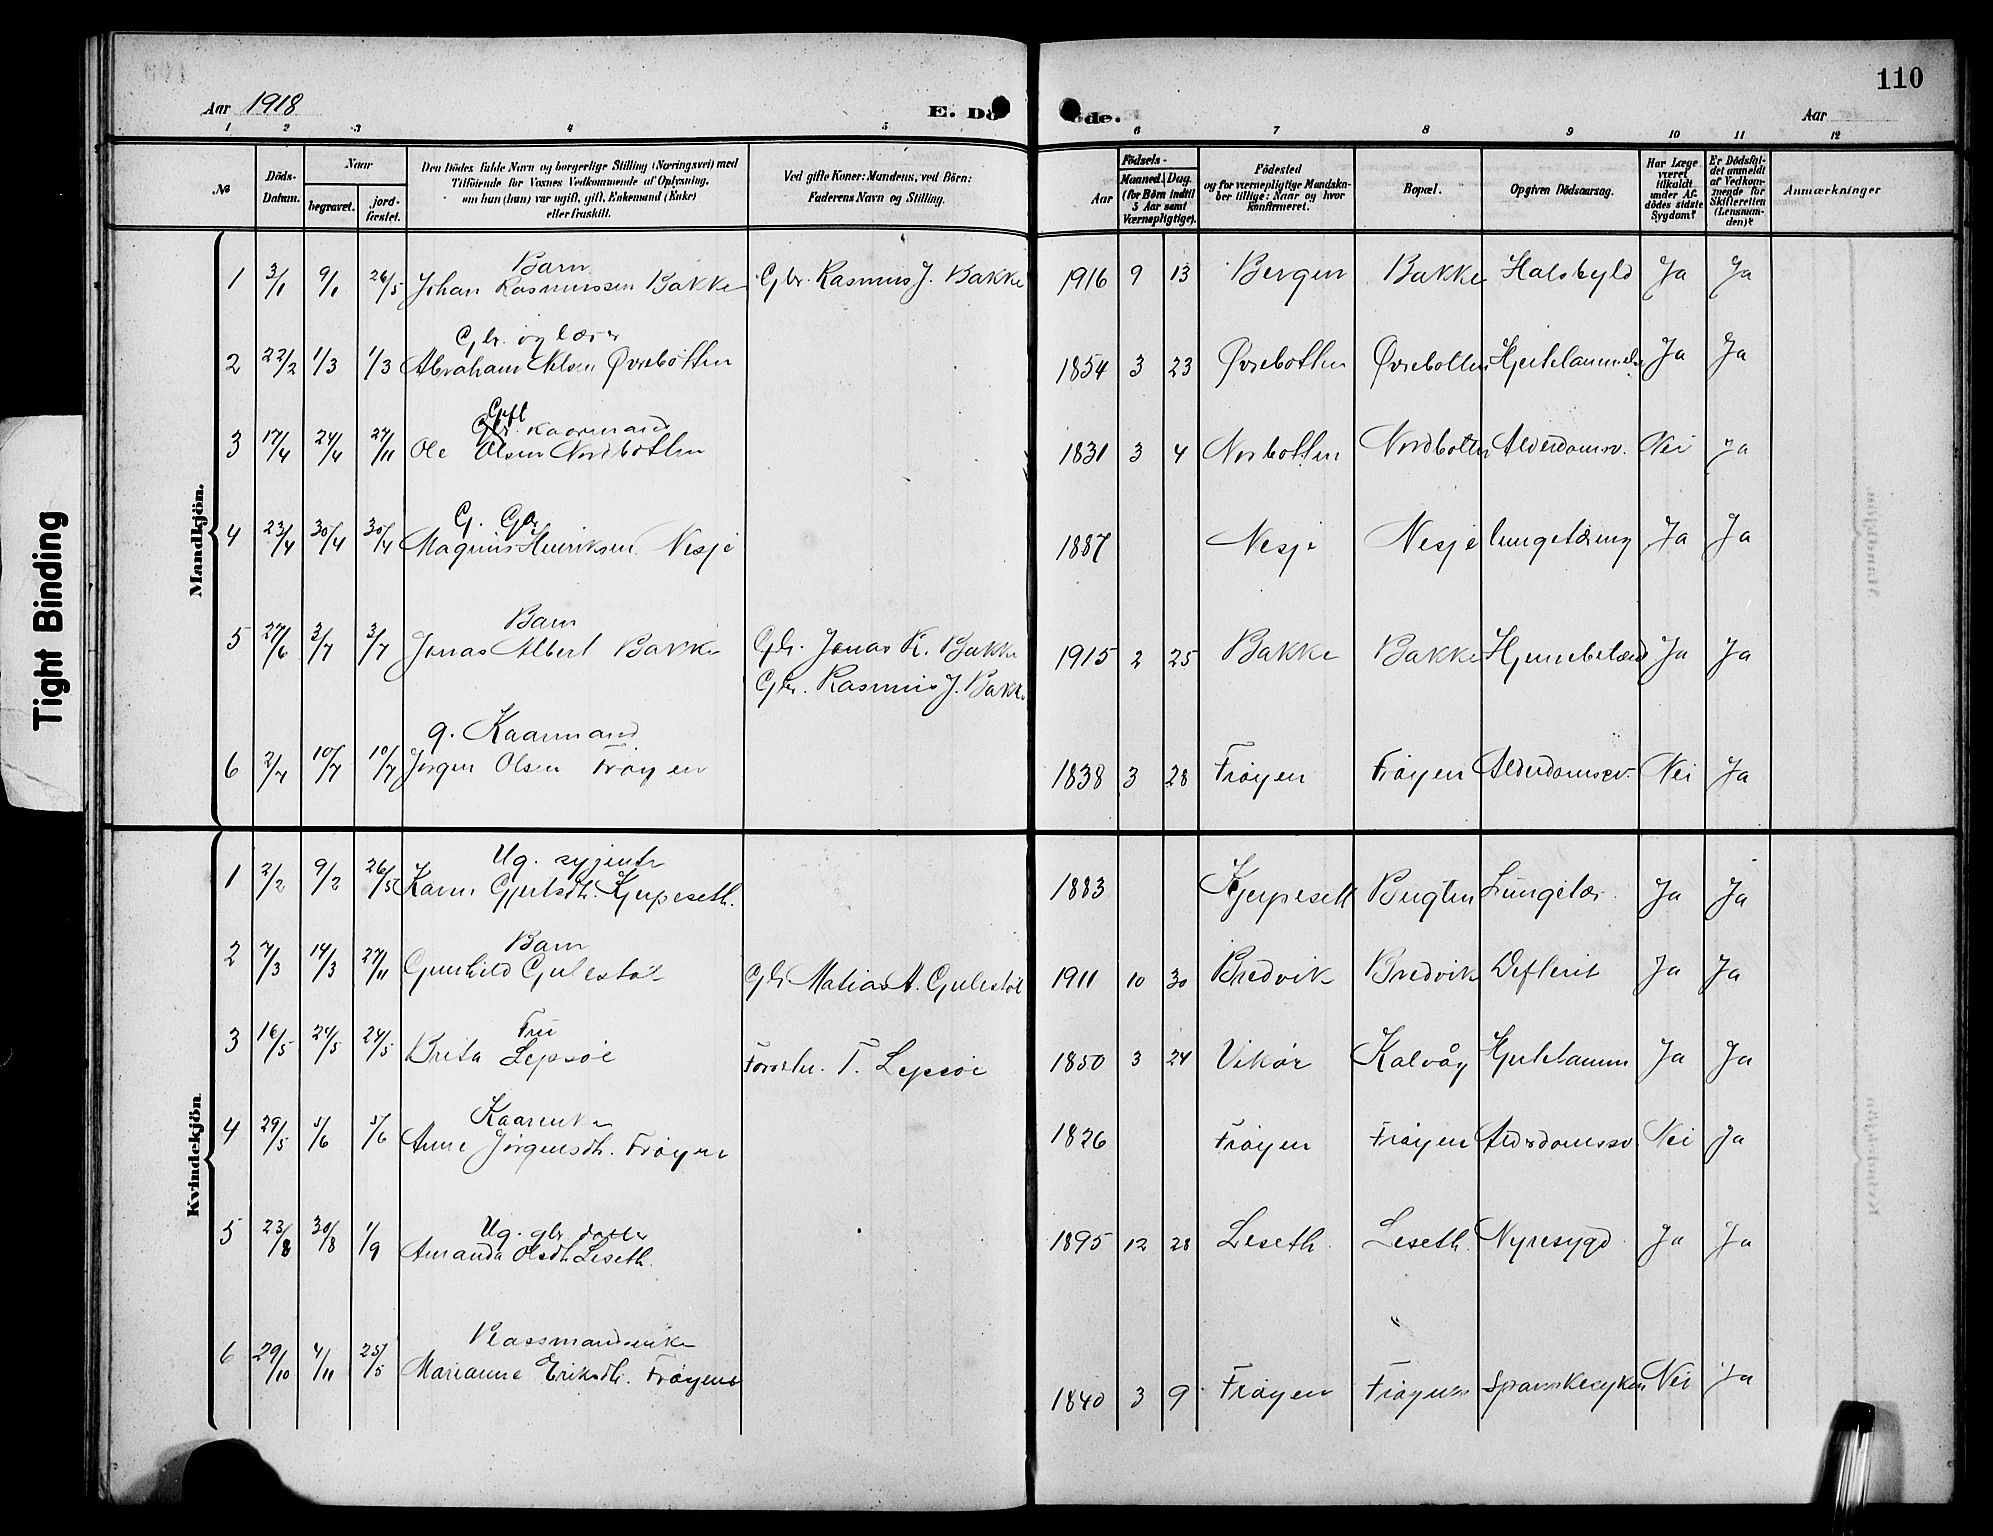 110
Aar 1918
E. Døde.
Aar
1 2 3 4 5 6 7 8 9 10 11 12
№
Døds-Datum.
Naar
begravet.
jord-fæstet.
Den Dödes fulde Navn og borgerlige Stilling (Næringsvei) med
Tilföiende for Voxnes Vedkommende af Oplysning,
om han (hun) var ugift, gift, Enkemand (Enke)
eller fraskilt.
Ved gifte Koner: Mandens, ved Börn:
Faderens Navn og Stilling.
Aar
Födsels-
Maaned. Dag.
(for Börn indtil
5 Aar samt
Værnepligtige).
Födested
og for værnepligtige Mandska-
ber tillige: Naar og hvor
konfirmeret.
Bopæl.
Opgiven Dödsaarsag.
Har Læge
været
tilkaldt
under Af-
dödes sidste
Sygdom?
Er Dödsfal-
det anmeldt
af Vedkom-
mende for
Skifteretten
(Lensman-
den)?
Anmærkninger
Tight Binding
Mandkjön.
Barn
1 3/1 9/1 26/5 Johan Rasmussen Bakke Gbr. Rasmus J. Bakke 1916 9 13 Bergen Bakke Halsbyld Ja Ja
Gbr. og lærer
2 22/2 1/3 1/3 Abraham Nelsen Øvrebotten 1854 3 23 Øvrebotten Øvrebotten Hjertelammelse Ja Ja
Gift
Gbr. Kaarmand
3 17/4 24/4 27/11 Ole Olsen Nordbotten 1831 3 4 Norbotten Nordbotten Alderdomsv. Nei Ja
G. Gbr.
4 23/4 30/4 30/4 Magnus Henriksen Nesje 1887 Nesje Nesje Lungetæring Ja Ja
Barn
5 27/6 3/7 3/7 Jonas Albert Bakke Gbr. Jonas R. Bakke 1915 2 25 Bakke Bakke Hjernebetænd Ja Ja
Gbr. Rasmus J. Bakke
g. Kaarmand
6 2/7 10/7 10/7 Jørgen Olsen Frøyen 1838 3 28 Frøyen Frøyen Alderdomssv. Nei Ja
Kvindekjön
Ug. syjente
1 2/2 9/2 26/5 Karen Gjertsdt. Kjerpeseth. 1883 Kjerpeseth Bugten Lungetær. Ja Ja
Barn
2 7/3 14/3 27/11 Gunhild Gulestøl Gbr Matias A. Gulestøl 1911 10 30 Bredvik Bredvik Defterit Ja Ja
Fru
3 16/5 24/5 24/5 Brita Lepsøe T. Lepsøe 1850 3 24 Vikør Kalvåg Hjertelamm Ja Ja
Kaarenke
4 29/5 5/6 5/6 Anne Jørgensdt. Frøyen 1826 Frøyen Frøyen Aldrdomssv Nei Ja
Ug. gbr datter
5 23/8 30/8 1/9 Amanda Olsdt Leseth. 1895 12 28 Leseth. Leseth. Nyresygd Ja Ja
Plassmandsenke
6 29/10 4/11 25/5 Marianne Eriksdt. Frøyen 1840 3 9 Frøyen Frøyen Spanskesyken Nei Ja